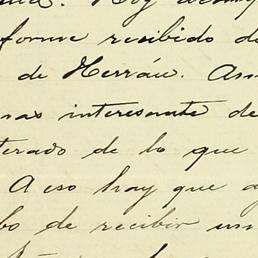 forme recibido de
de Herrán.
interesante de
terado de lo que
A eso hay que
bo de recibir un